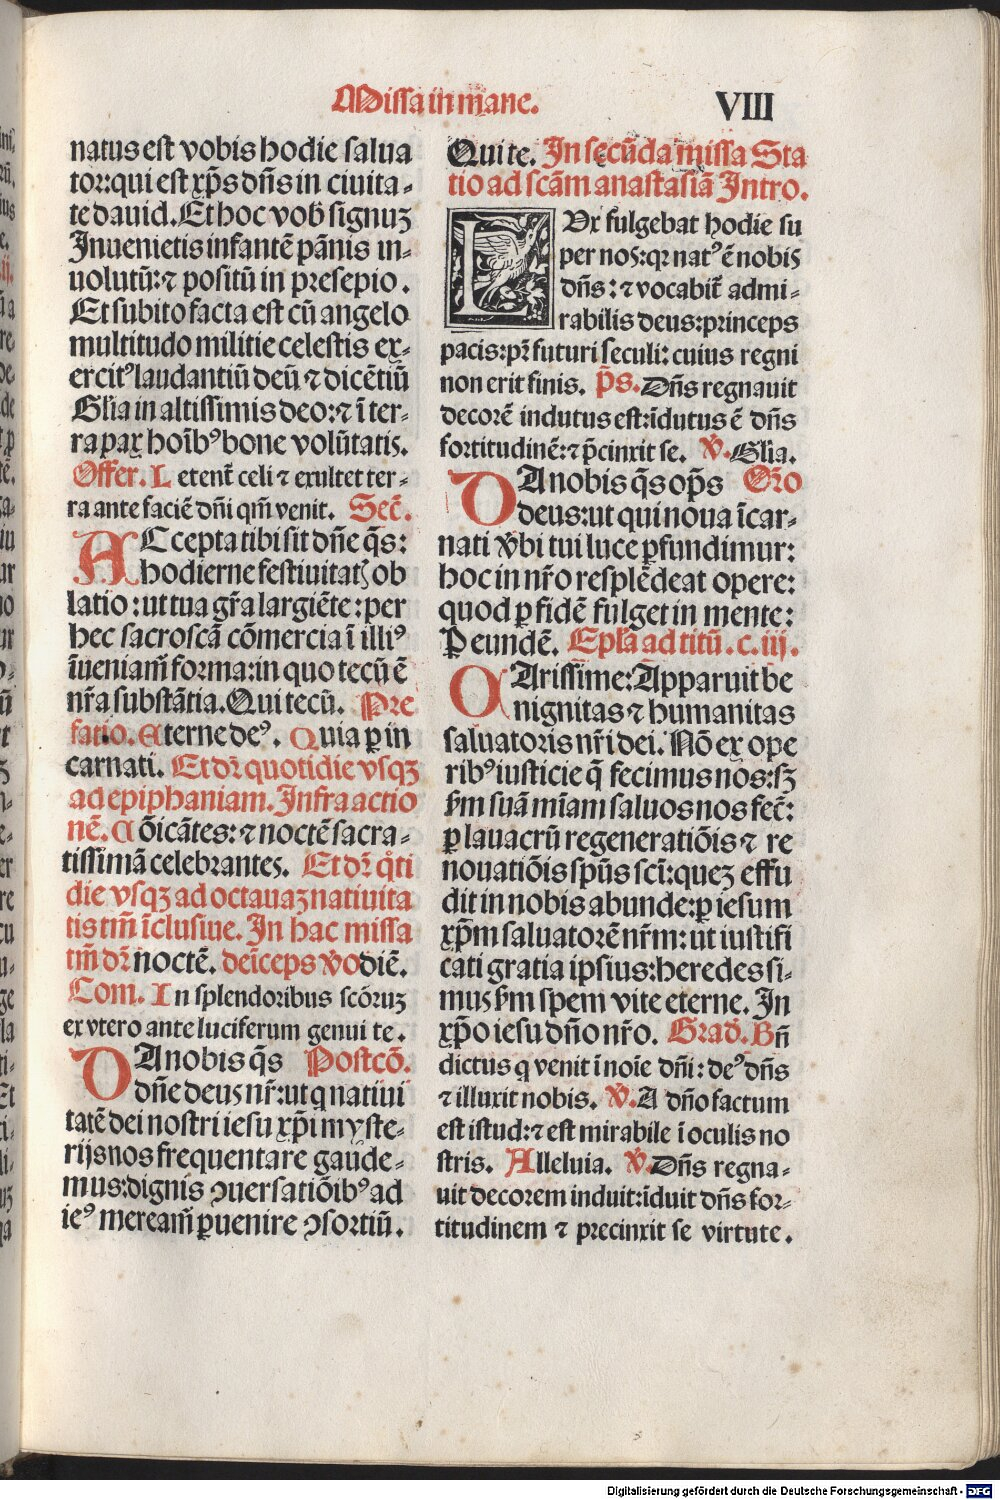 Missa in mane.
VIII
natus est vobis hodie salua
tor: qui est xp̄s dn̄s in ciuita-
te dauid. Et hoc vob̄ signuꝫ
Inuenietis infantē pānis in-
uolutū: ⁊ positū in presepio.
Et subito facta est cū angelo
multitudo militie celestis ex-
ercitꝰ laudantiū deū ⁊ dicētiū
Gl̄ia in altissimis deo: ⁊ ī ter-
ra pax hoībꝰ bone volūtatis.
Offer. Letent̄ celi ⁊ exultet ter-
ra ante faciē dn̄i qm̄ venit. Sec̄.
ACcepta tibi sit dn̄e q̄s:
hodierne festiuitatꝭ ob
latio: ut tua gr̄a largiēte: per
hec sacroscā cōmercia ī illiꝰ
īueniam̄ forma: in quo tecū ē
nr̄a substātia. Qui tecū. Pre
fatio. Eterne deꝰ. Quia ꝑ in
carnati. Et dr̄ quotidie vsqꝫ
ad epiphaniam. Infra actio
nē. Cōicātes: ⁊ noctē sacra-
tissimā celebrantes. Et dr̄ q̊ti
die vsqꝫ ad octauaꝫ natiuita
tis tm̄ īclusiue. In hac missa
tm̄ dr̄ noctē. deīceps vo diē.
Com. In splendoribus scōruꝫ
ex vtero ante luciferum genui te.
DA nobis q̄s Postcō.
dn̄e deus nr̄: ut q natiui
tatē dei nostri iesu xp̄i myste-
rijs nos frequentare gaude-
mus: dignis ꝯuersatiōibꝰ ad
ieꝰ meream̄ ꝑuenire ꝯsortiū.
Qui te. In secūda missa Sta
tio ad scām anastasiā Intro.
LVx fulgebat hodie su
per nos: qr natꝰ ē nobis
dn̄s: ⁊ vocabit̄ admi-
rabilis deus: princeps
pacis: pr̄ futuri seculi: cuius regni
non erit finis. p̄s. Dn̄s regnauit
decorē indutus est: īdutus ē dn̄s
fortitudinē: ⁊ p̄cinxit se. ℣. Gl̄ia.
DA nobis q̄s op̄s Oro
deus: ut qui noua īcar-
nati v̄bi tui luce ꝑfundimur:
hoc in nr̄o resplēdeat opere:
quod ꝑ fidē fulget in mente:
P eundē. Ep̄la ad titū. c. iij.
CArissime: Apparuit be
nignitas ⁊ humanitas
saluatoris nr̄i dei. Nō ex ope
ribꝰ iusticie q̄ fecimus nos: sꝫ
s̄m suā mīam saluos nos fec̄:
ꝑ lauacrū regeneratiōis ⁊ re
nouatiōis sp̄us scī: queꝫ effu
dit in nobis abunde: ꝑ iesum
xp̄m saluatorē nr̄m: ut iustifi
cati gratia ipsius: heredes si-
mus s̄m spem vite eterne. In
xp̄o iesu dn̄o nr̄o. Grad̄. Bn̄
dictus q venit ī noīe dn̄i: deꝰ dn̄s
⁊ illuxit nobis. ℣. A dn̄o factum
est istud: ⁊ est mirabile ī oculis no
stris. Alleluia. ℣. Dn̄s regna-
uit decorem induit: īduit dn̄s for-
titudinem ⁊ precinxit se virtute.
Digitalisierung gefördert durch die Deutsche Forschungsgemeinschaft - DFG